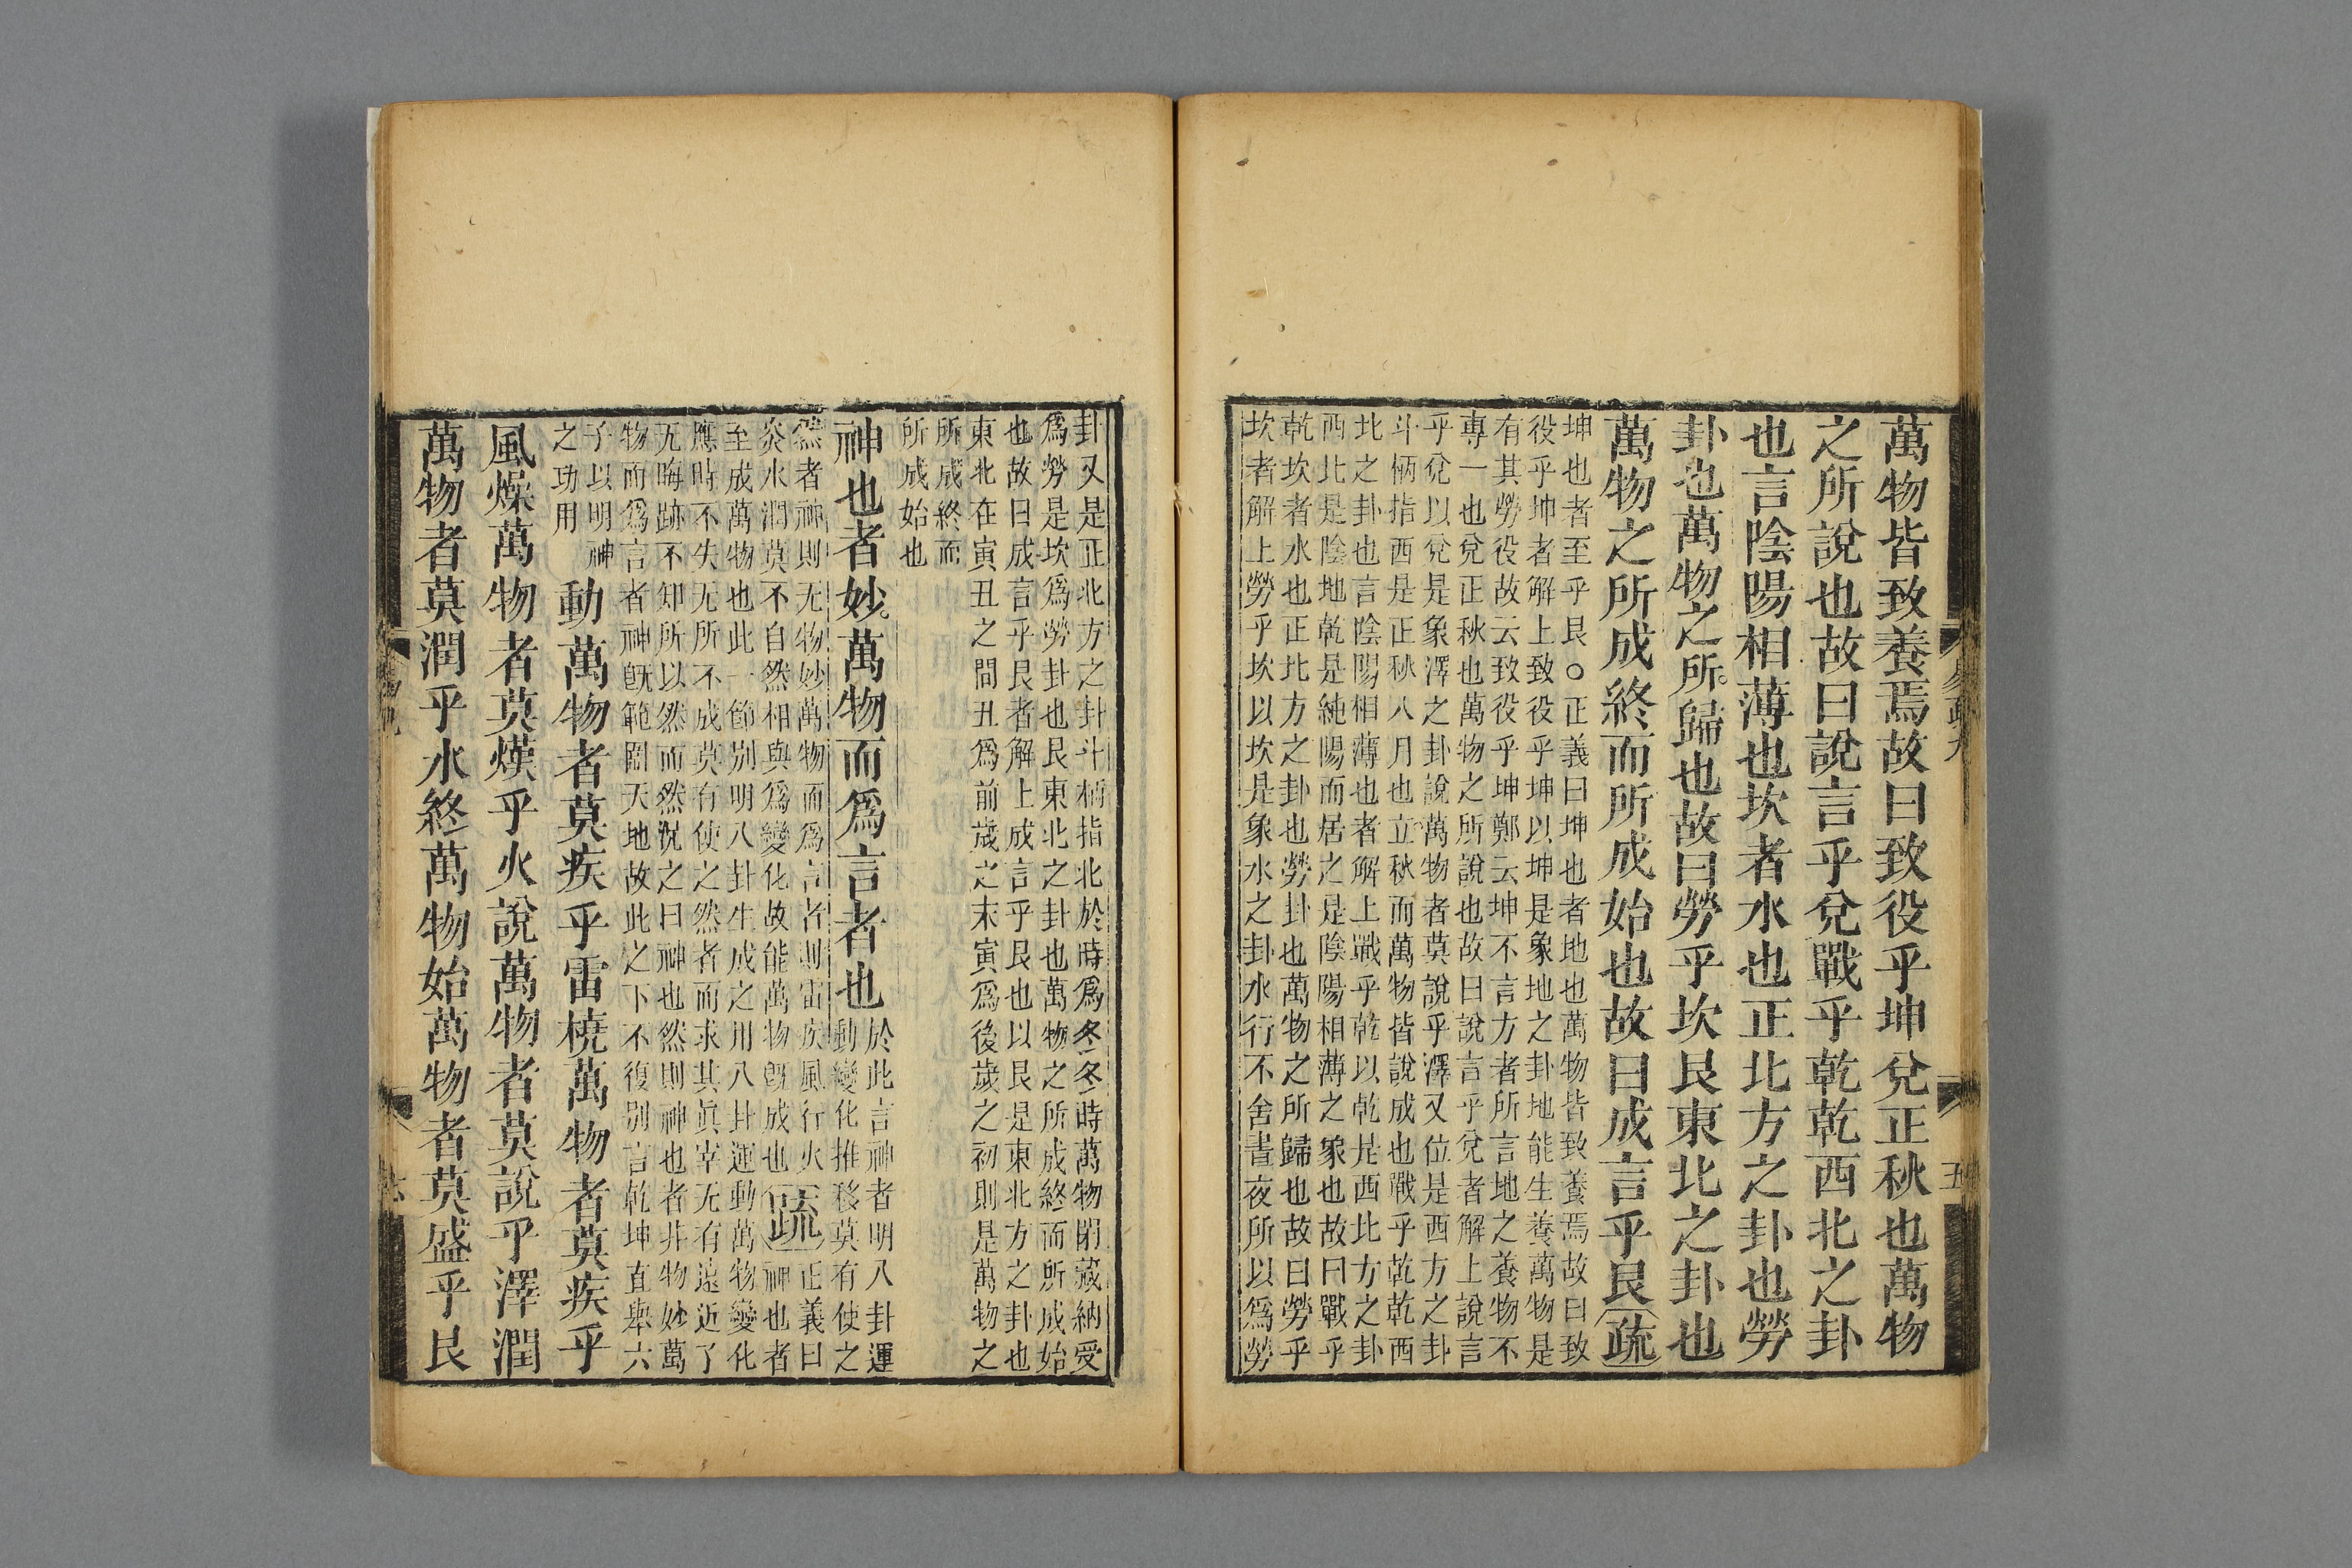 萬物皆致養焉故曰致役乎坤兌正秋也萬物
之所說也故曰說言乎兌戰乎乾乾西北之卦
也言陰陽相薄也坎者水也正北方之卦也勞
卦也萬物之所歸也故曰勞乎坎艮東北之卦也
萬物之所成終而所成始也故曰成言乎艮疏
坤也者至乎艮○正義曰坤也者地也萬物皆致養焉故曰致
役乎坤者解上致役乎坤以坤是象地之卦地能生養萬物是
有其勞役故云致役乎坤鄭云坤不言方者所言地之養物不
專一也兌正秋也萬物之所說也故曰說言乎兌者解上說言
乎兌以兌是象澤之卦說萬物者莫說乎澤又位是西方之卦
斗柄指西是正秋八月也立秋而萬物皆說成也戰乎乾乾西
北之卦也言陰陽相薄也者解上戰乎乾以乾是西北方之卦
西北是陰地乾是純陽而居之是陰陽相薄之象也故曰戰乎
乾坎者水也正北方之卦也勞卦也萬物之所歸也故曰勞乎
坎者解上勞乎坎以坎是象水之卦水行不舍晝夜所以爲勞
易疏九
五
卦又是正北方之卦斗柄指北於時爲冬冬時萬物閉藏納受
爲勞是坎爲勞卦也艮東北之卦也萬物之所成終而所成始
也故曰成言乎艮者解上成言乎艮也以艮是東北方之卦也
東北在寅丑之間丑爲前歲之末寅爲後歲之初則是萬物之
所成終而
所成始也
神也者妙萬物而爲言者也
於此言神者明八卦運
動變化推移莫有使之
然者神則无物妙萬物而爲言者則雷疾風行火
炎水潤莫不自然相與爲變化故能萬物旣成也
疏
正義曰
神也者
至成萬物也此一節別明八卦生成之用八卦運動萬物變化
應時不失无所不成莫有使之然者而求其眞宰无有遠近了
无晦跡不知所以然而然況之曰神也然則神也者非物妙萬
物而爲言者神旣範圍天地故此之下不復別言乾坤直舉六
子以明神
之功用
動萬物者莫疾乎雷橈萬物者莫疾乎
風燥萬物者莫熯乎火說萬物者莫說乎澤潤
萬物者莫潤乎水終萬物始萬物者莫盛乎艮